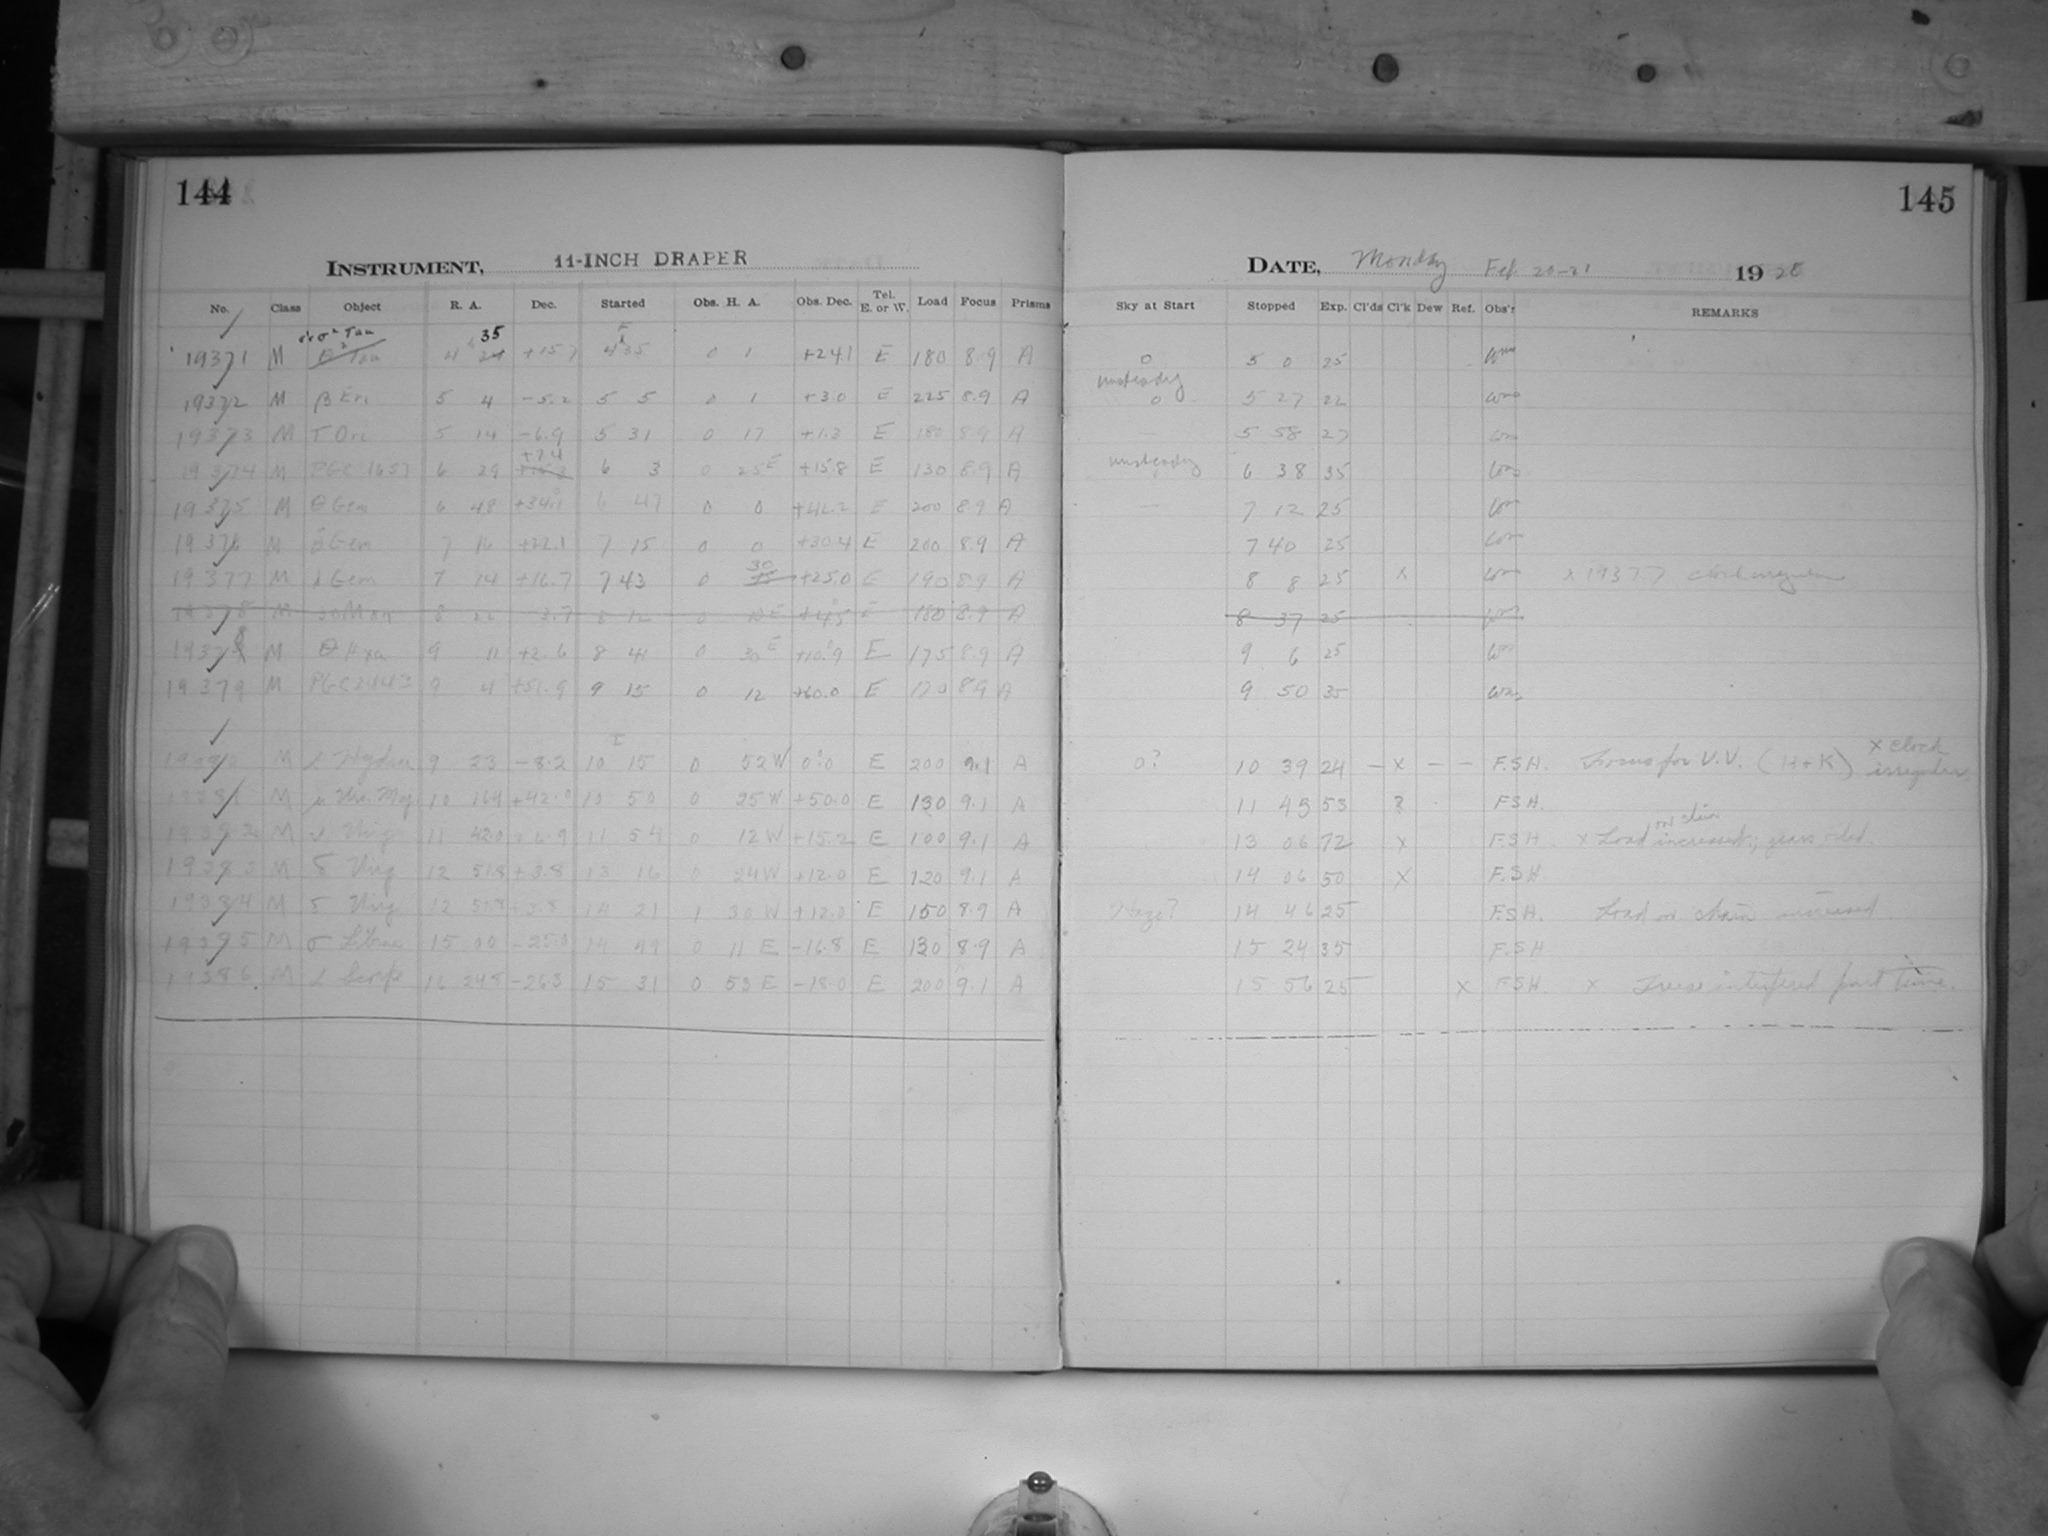 144
145
INSTRUMENT, 11-INCH DRAPER
DATE, Monday Feb 20-21 1928
No. Class Object R. A. Dec. Started Obs. H. A. Obs. Dec. Tel. E. or W. Load Focus Prisms Sky at Start Stopped Exp. Cl'ds Cl'k Dew Ref. Obs'r REMARKS
σ² Tau 35
19371 M θ² Tau 4 24 +15.7 4 35 0 1 +24.1 E 180 8.9 A 0 5 0 25
unsteady
19372 M β Eri 5 4 -5.2 5 5 0 1 +3.0 E 225 8.9 A 0 5 27 22
19373 M τ Ori 5 14 -6.9 5 31 0 17 +1.3 E 180 8.9 A — 5 58 27
+7.4
19374 M PGC 1657 6 29 6 3 0 25 E +15.8 E 130 8.9 A unsteady 6 38 35
19375 M θ Gem 6 48 +34.1 6 47 0 0 +42.2 E 200 8.9 A — 7 12 25
19376 M δ Gem 7 16 +22.1 7 15 0 0 +30.4 E 200 8.9 A 7 40 25
19377 M λ Gem 7 14 +16.7 7 43 0 30 +25.0 E 190 8.9 A 8 8 25 x x 19377 clock irregular
19378 M 30 Mon 8 22 -3.7 8 12 0 10 E +4.5 E 180 8.9 A 8 37 25
19378 M θ Hya 9 11 +2.6 8 41 0 30 E +10.9 E 175 8.9 A 9 6 25
19379 M PGC 2443 9 4 +51.9 9 15 0 12 +60.0 E 120 8.9 A 9 50 35
19380 M α Hydrae 9 23 -8.2 10 15 0 52 W 0.0 E 200 9.1 A 0? 10 39 24 — x — — F.S.H. Focus for U.V. (H+K) x clock irregular
19381 M μ Urs. Maj 10 16.4 +42.0 10 50 0 25 W +50.0 E 130 9.1 A 11 43 53 ? FSH.
19382 M ν Virg 11 42.0 +6.9 11 54 0 12 W +15.2 E 100 9.1 A 13 06 72 x F.S.H. x Load on chain increased; gears oiled.
19383 M δ Virg 12 51.8 +3.8 13 16 0 24 W +12.0 E 120 9.1 A 14 06 50 x F.S.H.
19384 M δ Virg 12 51.8 +3.8 14 21 1 30 W +12.0 E 150 8.9 A Haze? 14 46 25 F.S.H. Load on chain increased.
19385 M σ Librae 15 00 -25.0 14 49 0 11 E -16.8 E 130 8.9 A 15 24 35 F.S.H
19386 M α Scorp 16 24.5 -26.3 15 31 0 53 E -18.0 E 200 9.1 A 15 56 25 x F.S.H. x Trees interfered part time.